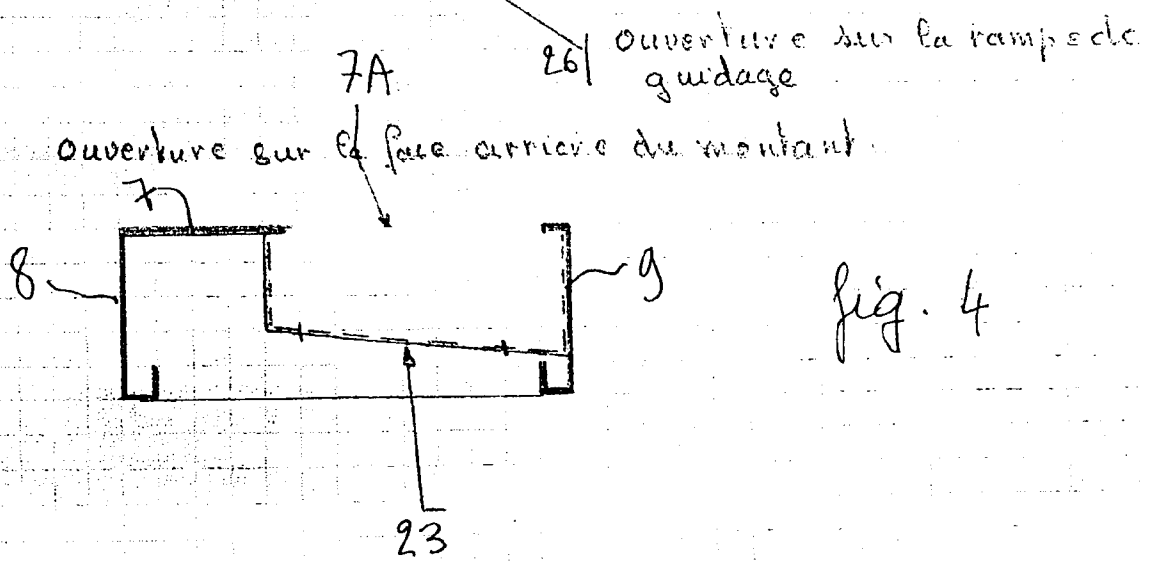 26 ouverture sur la rampe de
guidage
7A
ouverture sur la face arriere du montant.
7
8
9
fig. 4
23